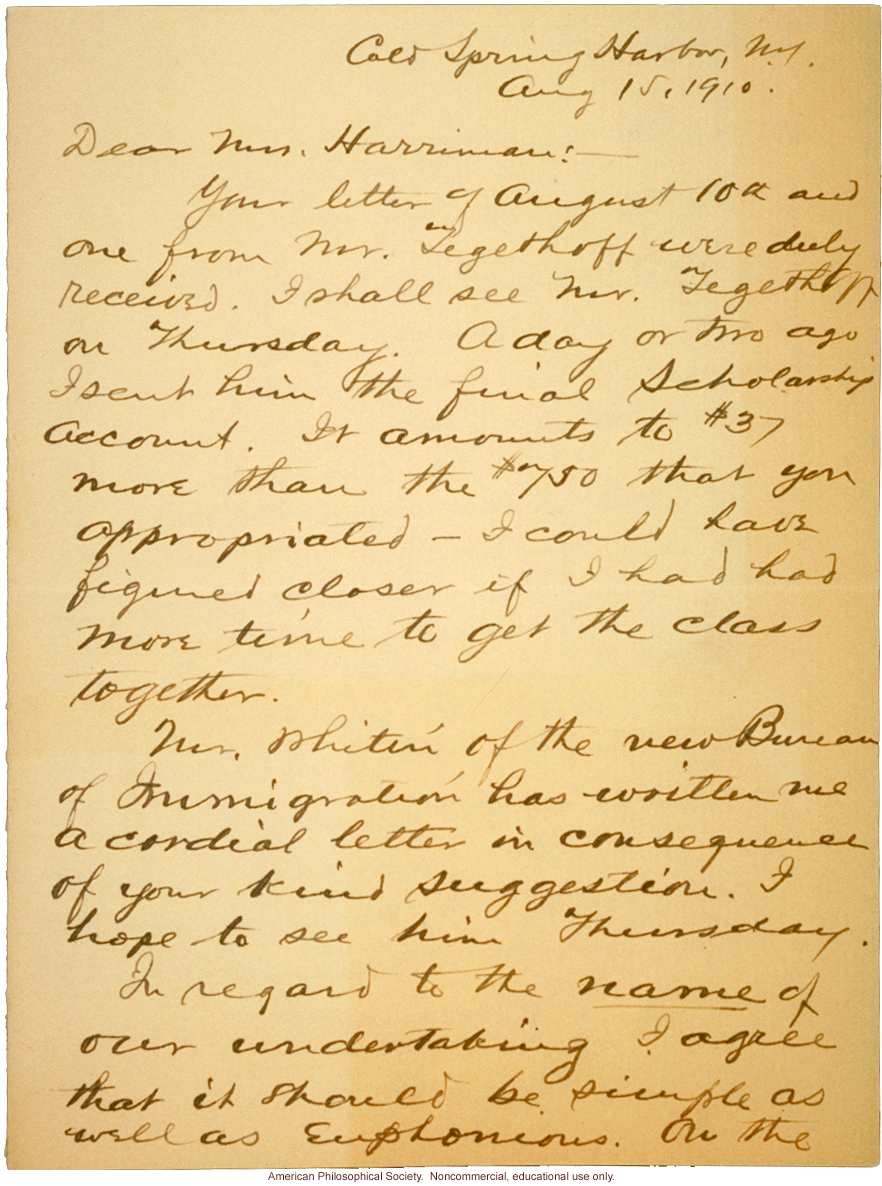 Cold Spring Harbor, N.Y.
Aug 15, 1910.
Dear Mrs. Harriman:—
Your letter of August 10th and
one from Mr. Tegethoff were duly
received. I shall see Mr. Tegethoff
on Thursday. A day or two ago
I sent him the final Scholarship
account. It amounts to $37
more than the $750 that you
appropriated – I could have
figured closer if I had had
more time to get the class
together.
Mr. Whitin of the new Bureau
of Immigration has written me
a cordial letter in consequence
of your kind suggestion. I
hope to see him Thursday.
In regard to the name of
our undertaking I agree
that it should be simple as
well as Euphonious. On the
American Philosophical Society. Noncommercial, educational use only.